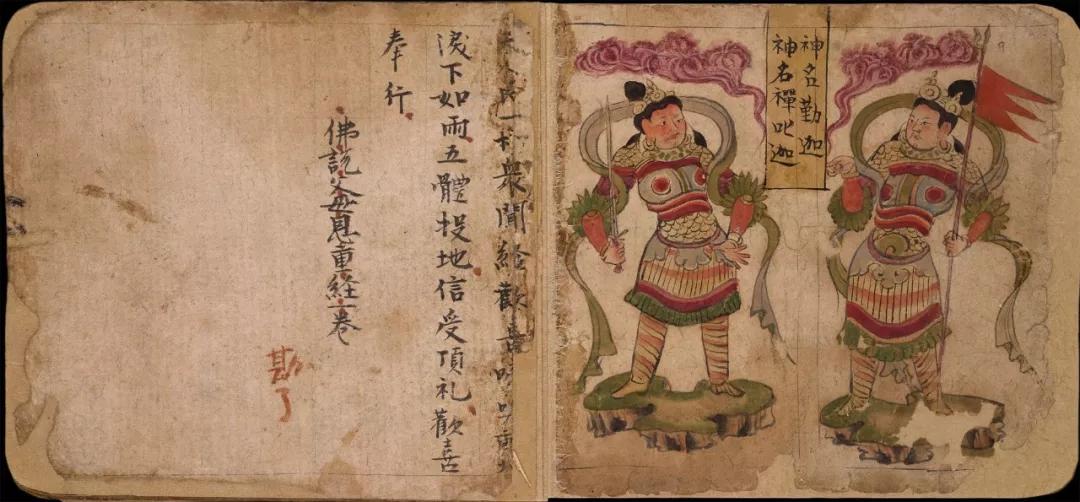 神名勤迦
神名禪叱迦
人民一切衆聞経歡喜
淚下如雨五體投地信受頂礼歡喜
奉行
佛說父母恩重経一卷
勘了